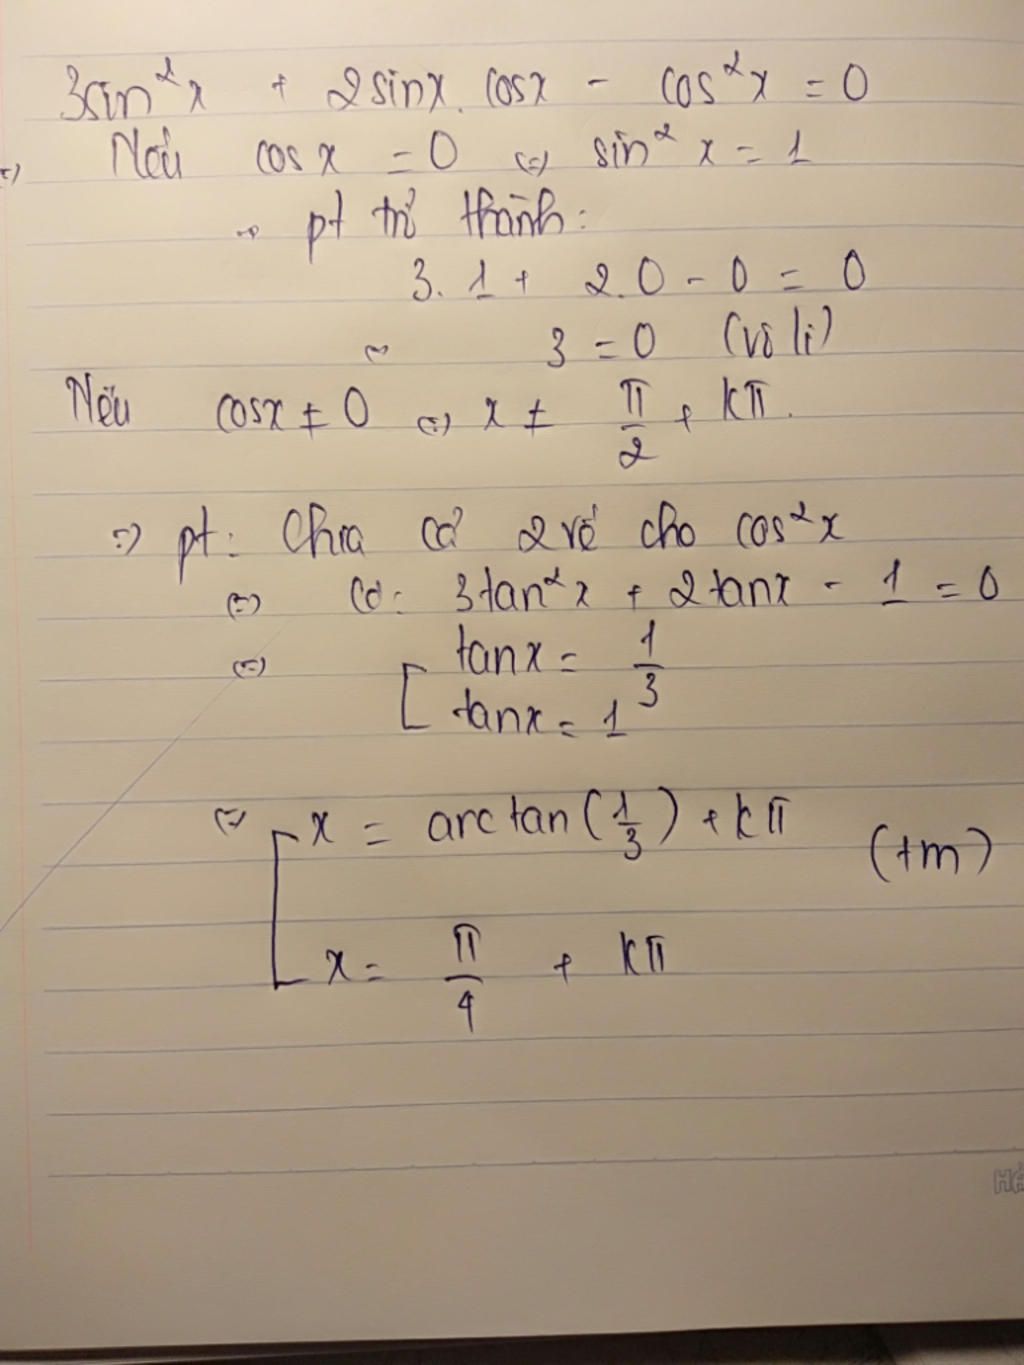 3sin²x + 2sinx.cosx - cos²x = 0
(=) Nếu cosx = 0 (=) sin²x = 1
→ pt trở thành:
3.1 + 2.0 - 0 = 0
3 = 0 (vô lí)
Nếu cosx ≠ 0 (=) x ≠ π/2 + kπ.
=) pt: Chia cả 2 vế cho cos²x
(=) Có: 3tan²x + 2tanx - 1 = 0
(=) [ tanx = 1/3
tanx = 1
(=) [ x = arctan(1/3) + kπ (tm)
x = π/4 + kπ